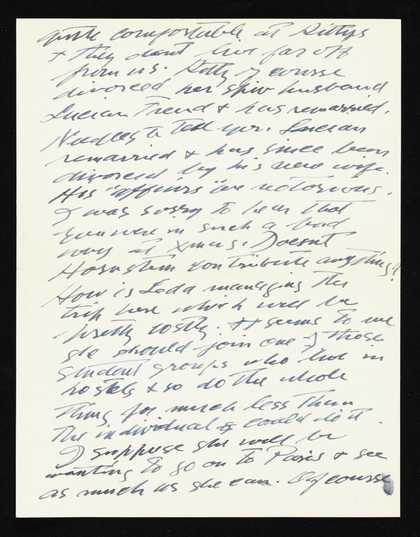 quite comfortable at Kittys
& they dont live far off
from us. Kitty of course
divorced her spiv husband
Lucian Freud & has remarried.
Needless to tell you. Lucian
remarried & has since been
divorced by his new wife.
His "affairs" are notorious.
I was sorry to hear that
you were in such a bad
way at Xmas. Doesnt
Hornstein contribute anything?
How is Leda managing the
trip here which will be
pretty costly. It seems to me
she should join one of those
student groups who live in
hostels & so do the whole
thing for much less than
the individual could do it.
I suppose she will be
wanting to go on to Paris & see
as much as she can. Of course